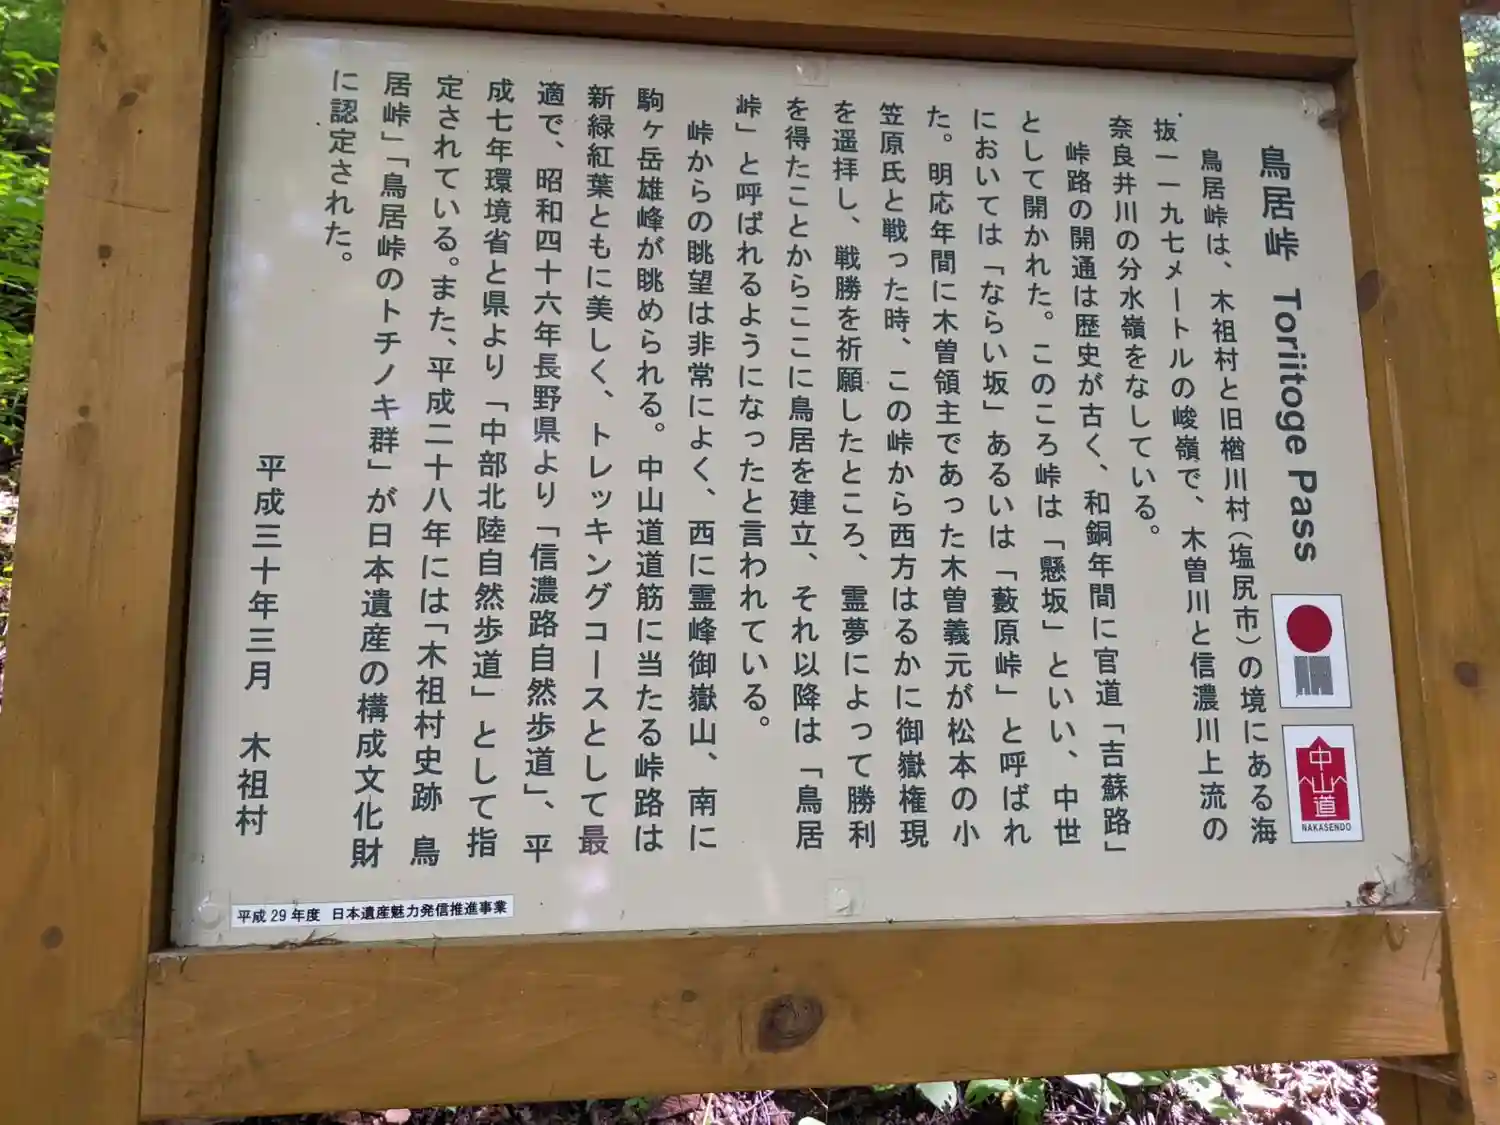 鳥居峠 Toriitoge Pass
鳥居峠は、木祖村と旧楢川村（塩尻市）の境にある海
抜一一九七メートルの峻嶺で、木曽川と信濃川上流の
奈良井川の分水嶺をなしている。
峠路の開通は歴史が古く、和銅年間に官道「吉蘇路」
として開かれた。このころ峠は「懸坂」といい、中世
においては「ならい坂」あるいは「藪原峠」と呼ばれ
た。明応年間に木曽領主であった木曽義元が松本の小
笠原氏と戦った時、この峠から西方はるかに御嶽権現
を遥拝し、戦勝を祈願したところ、霊夢によって勝利
を得たことからここに鳥居を建立、それ以降は「鳥居
峠」と呼ばれるようになったと言われている。
峠からの眺望は非常によく、西に霊峰御嶽山、南に
駒ヶ岳雄峰が眺められる。中山道道筋に当たる峠路は
新緑紅葉ともに美しく、トレッキングコースとして最
適で、昭和四十六年長野県より「信濃路自然歩道」、平
成七年環境省と県より「中部北陸自然歩道」として指
定されている。また、平成二十八年には「木祖村史跡 鳥
居峠」「鳥居峠のトチノキ群」が日本遺産の構成文化財
に認定された。
平成三十年三月 木祖村
中山道
NAKASENDO
平成29年度 日本遺産魅力発信推進事業